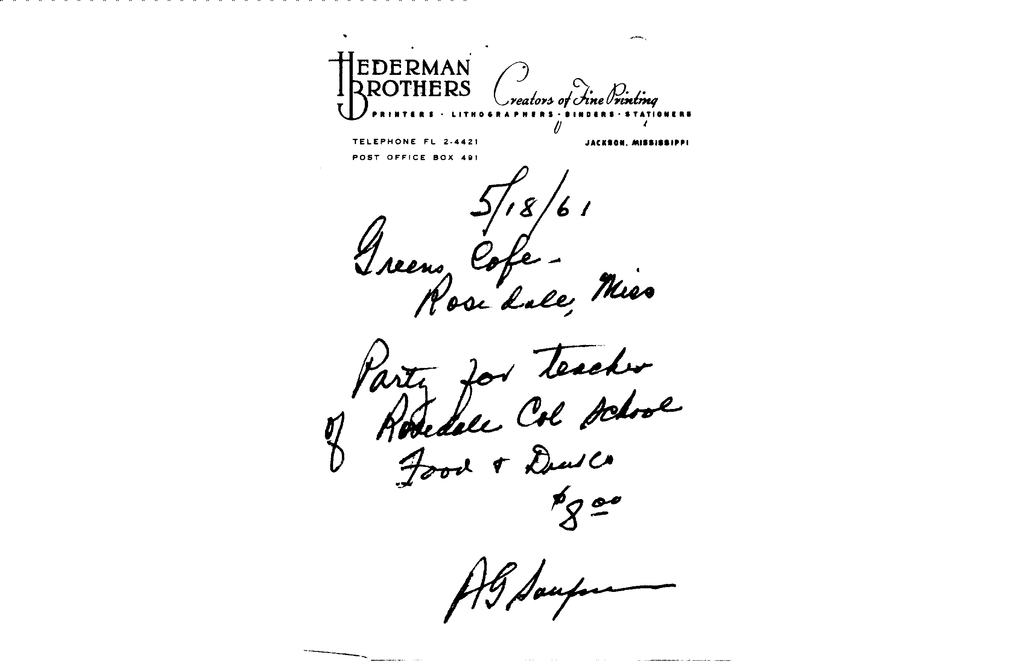 HEDERMAN
BROTHERS
Creators of Fine Printing
PRINTERS · LITHOGRAPHERS · BINDERS · STATIONERS
TELEPHONE FL 2-4421
JACKSON, MISSISSIPPI
POST OFFICE BOX 491
5/18/61
Greens Cafe -
Rosedale, Miss
Party for teacher
of Rosedale Col School
Food +
$8.00
A G